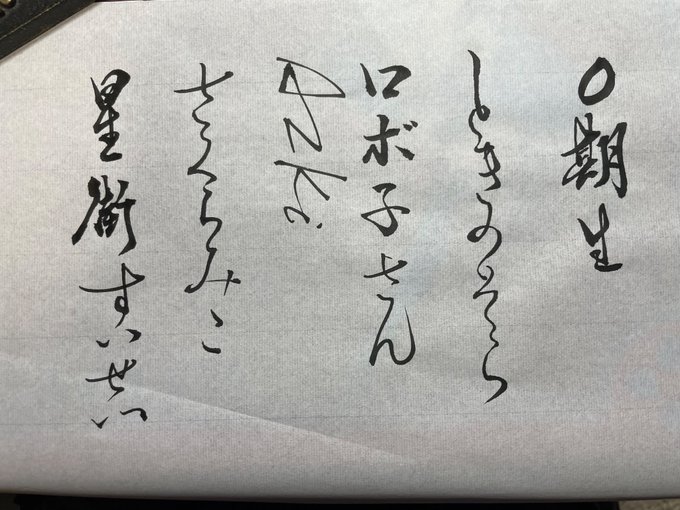 ０期生
ときのそら
ロボ子さん
AZKi
さくらみこ
星街すいせい